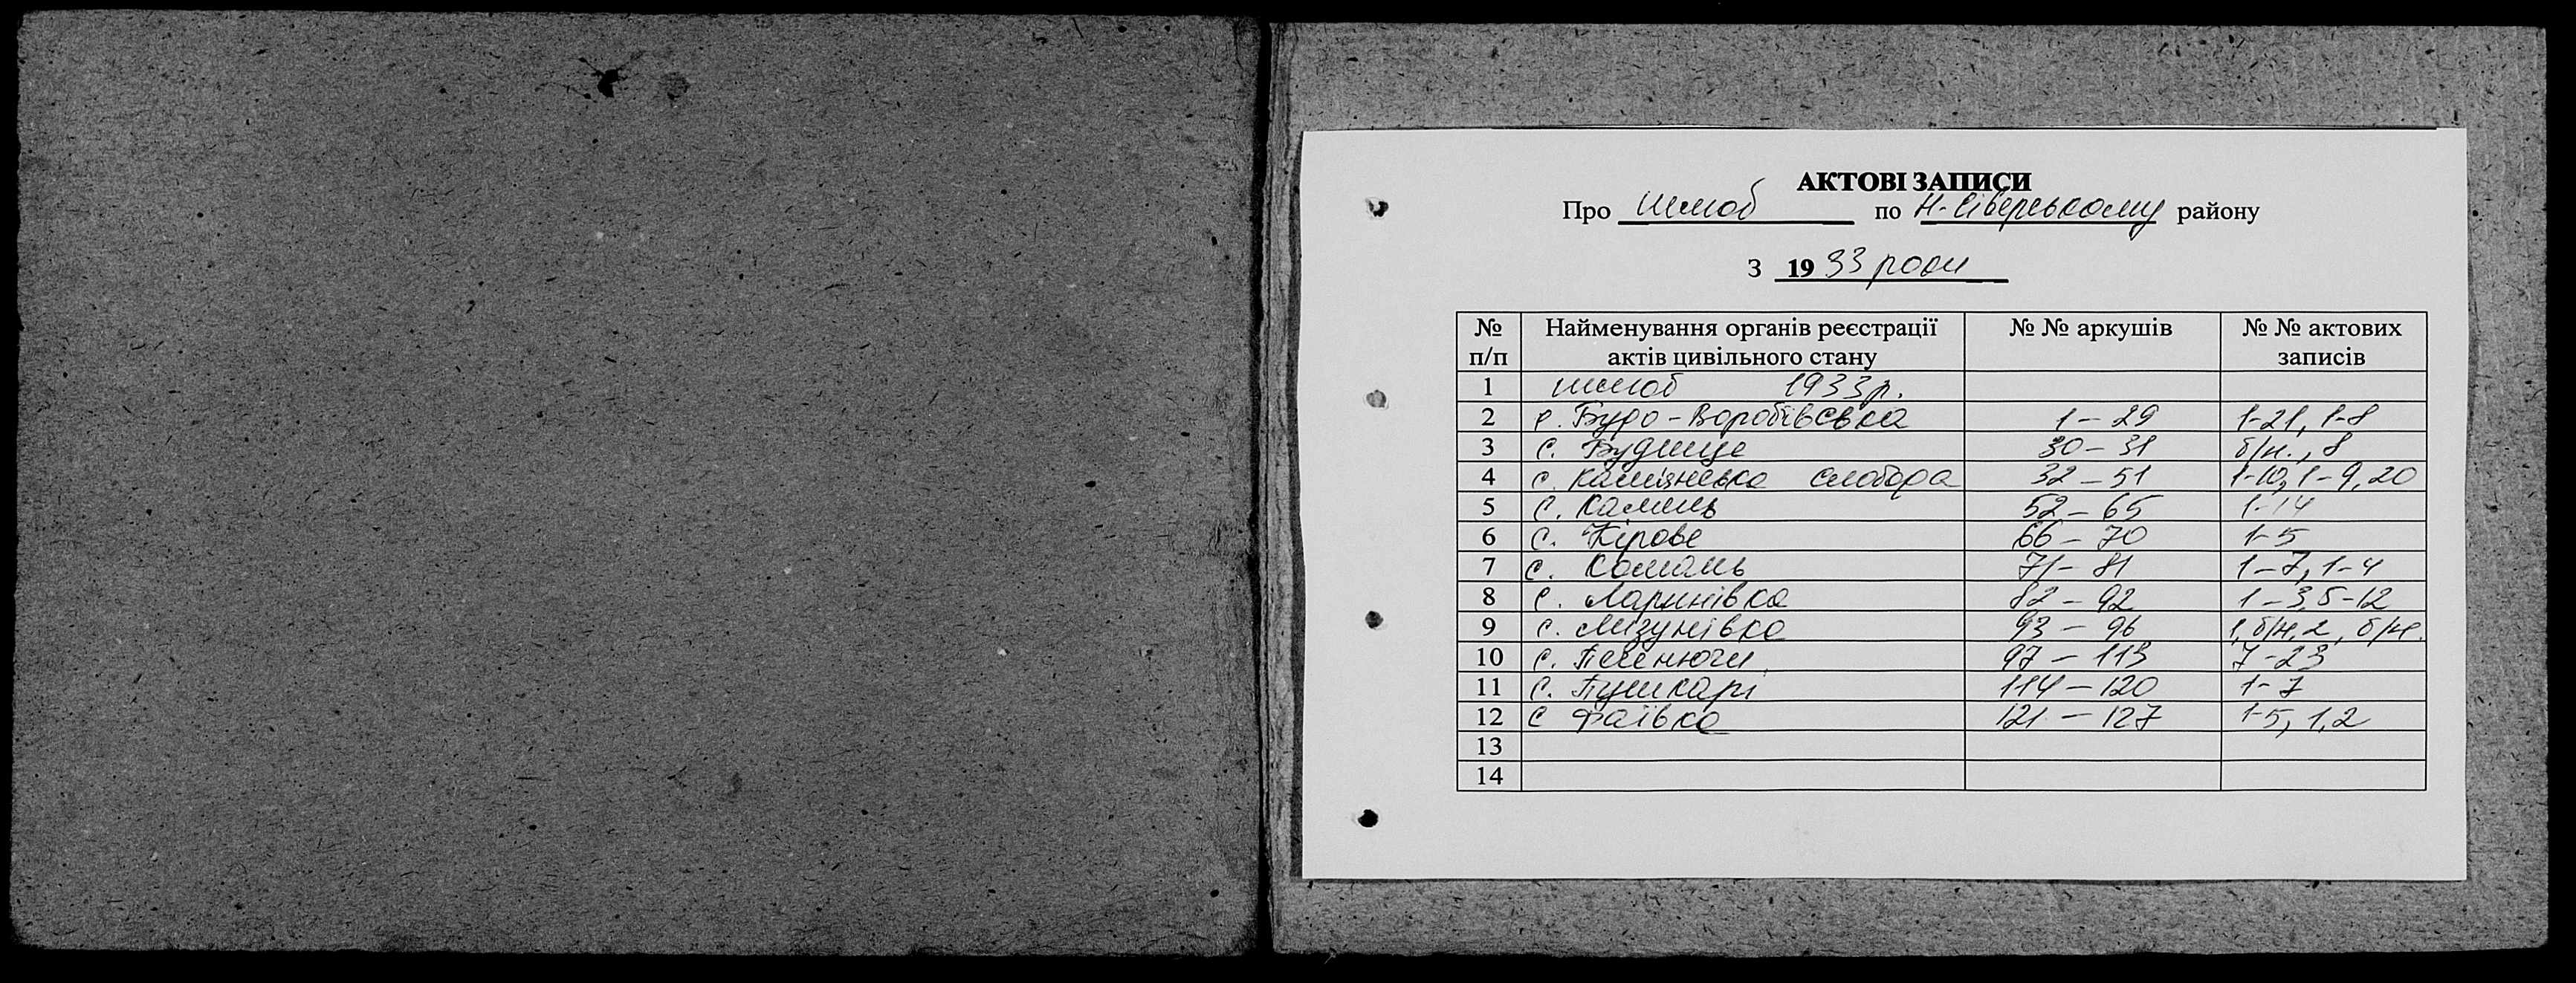 АКТОВІ ЗАПИСИ
Про шлюб по Н-Сіверському району
З 1933 роки
№ п/п Найменування органів реєстрації актів цивільного стану № № аркушів № № актових записів
1 шлюб 1933р.
2 с. Будо-Воробївська 1-29 1-21, 1-8
3 с. Будище 30-31 б/н., 8
4 с. Камянська слобода 32-51 1-10, 1-9, 20
5 с. Камень 52-65 1-14
6 с. Кірове 66-70 1-5
7 с. Комань 71-81 1-7, 1-4
8 с. Ларинівка 82-92 1-3, 5-12
9 с. Мізунівка 93-96 1, б/н, 2, б/н.
10 с. Печенюги 97-113 7-23
11 с. Пушкарі 114-120 1-7
12 с Фаївка 121-127 1-5, 1,2
13
14